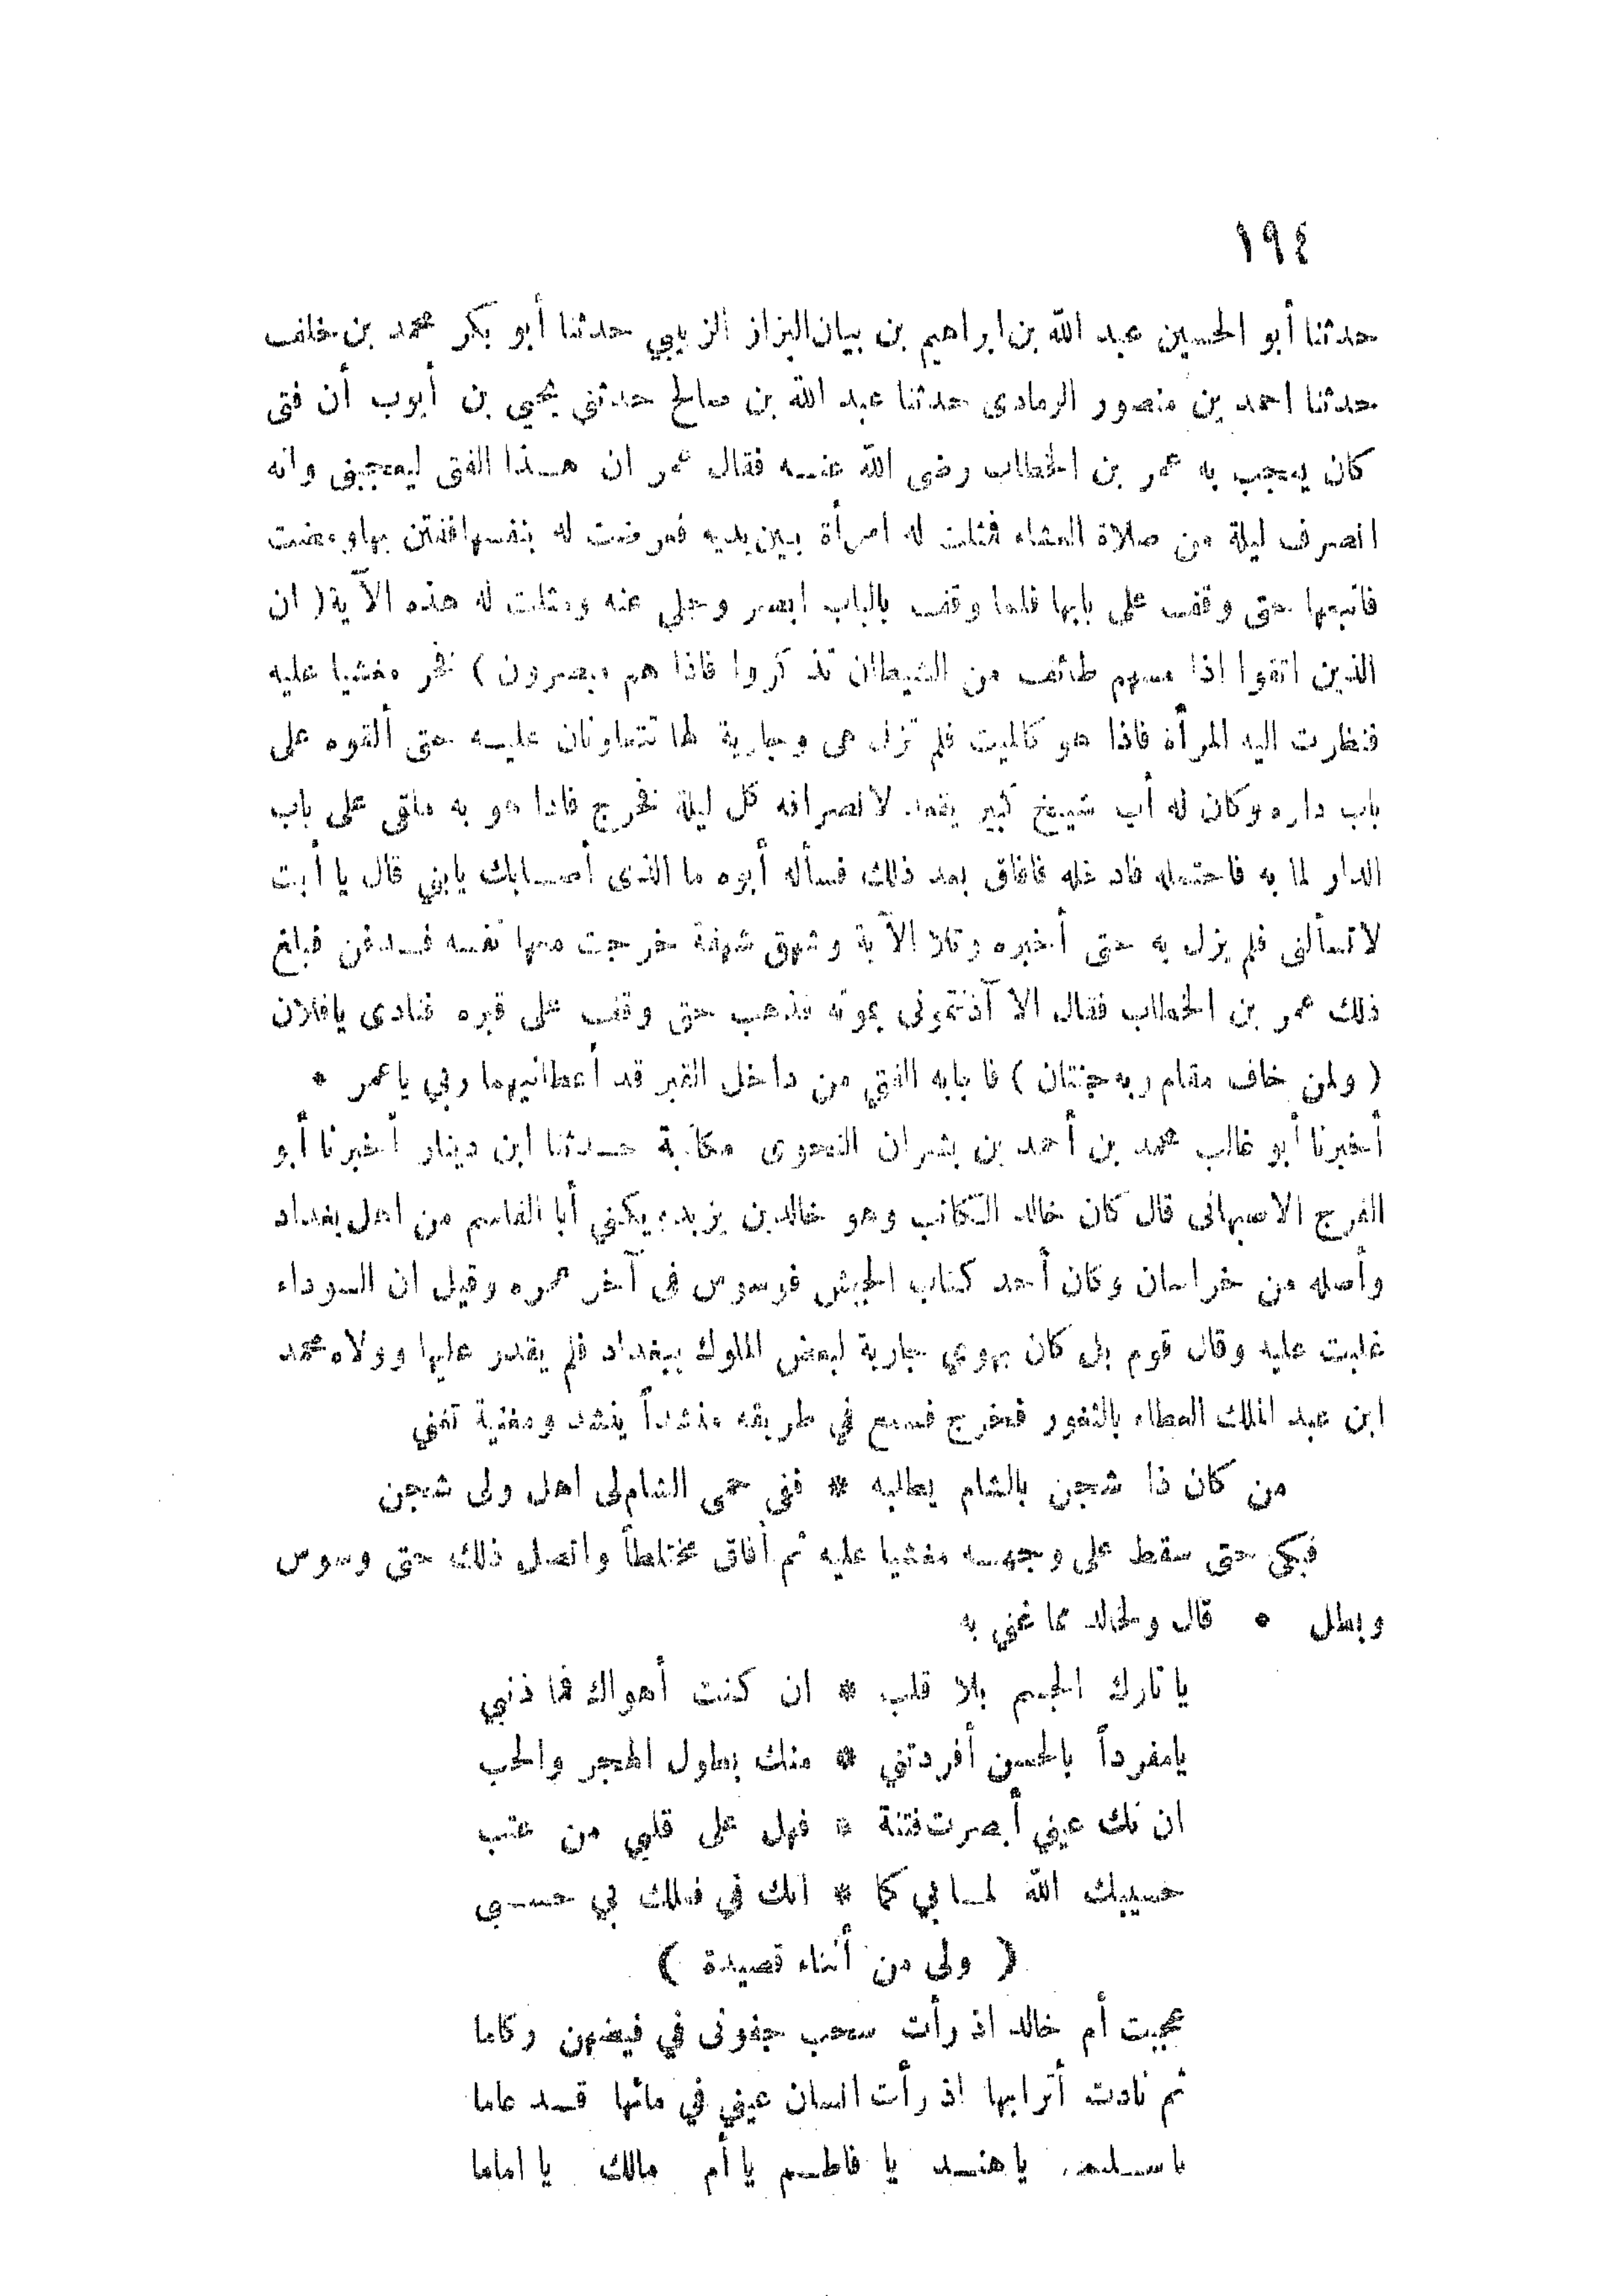 ١٩٤
حدثنا أبو الحسين عبد الله بن ابراهيم بن بيان البزاز الزبيبي حدثنا أبو بكر محمد بن خلف
حدثنا احمد بن منصور الرمادى حدثنا عبد الله بن صالح حدثني يحيي بن أيوب أن فتى
كان يعجب به عمر بن الخطاب رضى الله عنه فقال عمر ان هذا الفتى ليعجبنى وانه
انصرف ليلة من صلاة العشاء فمثلت له امرأة بين يديه فعرضت له بنفسها فافتتن بها ومضت
فاتبعها حتى وقف على بابها فلما وقف بالباب ابصر وجلى عنه ومثلت له هذه الآية ( ان
الذين اتقوا اذا مسهم طائف من الشيطان تذكروا فاذا هم مبصرون ) فخر مغشيا عليه
فنظرت اليه المرأة فاذا هو كالميت فلم تزل هى وجارية لها تتعاونان عليه حتى ألقوه على
باب داره وكان له أب شيخ كبير يقعد لانصرافه كل ليلة فخرج فاذا هو به ملقى على باب
الدار لما به فاحتمله فادخله فافاق بعد ذلك فسأله أبوه ما الذى أصابك يابني قال يا أبت
لا تسألنى فلم يزل به حتى أخبره وتلا الآية وشهق شهقة خرجت معها نفسه فدفن فبلغ
ذلك عمر بن الخطاب فقال الا آذنتمونى بموته فذهب حتى وقف على قبره فنادى يافلان
( ولمن خاف مقام ربه جنتان ) فاجابه الفتى من داخل القبر قد أعطانيهما ربي ياعمر •
أخبرنا أبو غالب محمد بن أحمد بن بشران النحوى مكاتبة حدثنا ابن دينار أخبرنا أبو
الفرج الاصبهانى قال كان خالد الكاتب وهو خالد بن يزيد ويكنى أبا القاسم من اهل بغداد
وأصله من خراسان وكان أحد كتاب الجيش فوسوس فى آخر عمره وقيل ان السوداء
غلبت عليه وقال قوم بل كان يهوي جارية لبعض الملوك ببغداد فلم يقدر عليها وولاه محمد
ابن عبد الملك العطاء بالثغور فخرج فسمع في طريقه منشداً ينشد ومغنية تغني
من كان ذا شجن بالشام يطلبه * ففي حمى الشام لى اهل ولى شجن
فبكى حتى سقط على وجهه مغشيا عليه ثم أفاق مختلطاً واتصل ذلك حتى وسوس
وبطل • قال ولخالد مما غني به
يا تارك الجسم بلا قلب * ان كنت أهواك فما ذنبي
يامفرداً بالحسن أفردتني * منك بطول الهجر والحب
ان تك عيني أبصرت فتنة * فهل على قلبي من عتب
حسيبك الله لما بي كما * انك في فعلك بي حسبى
( ولى من أثناء قصيدة )
عجبت أم خالد اذ رأت سحب جفونى في فيضهن ركاما
ثم نادت أترابها اذ رأت انسان عيني في مائها قد عاما
يا هند يا فاطم يا أم مالك يا اماما